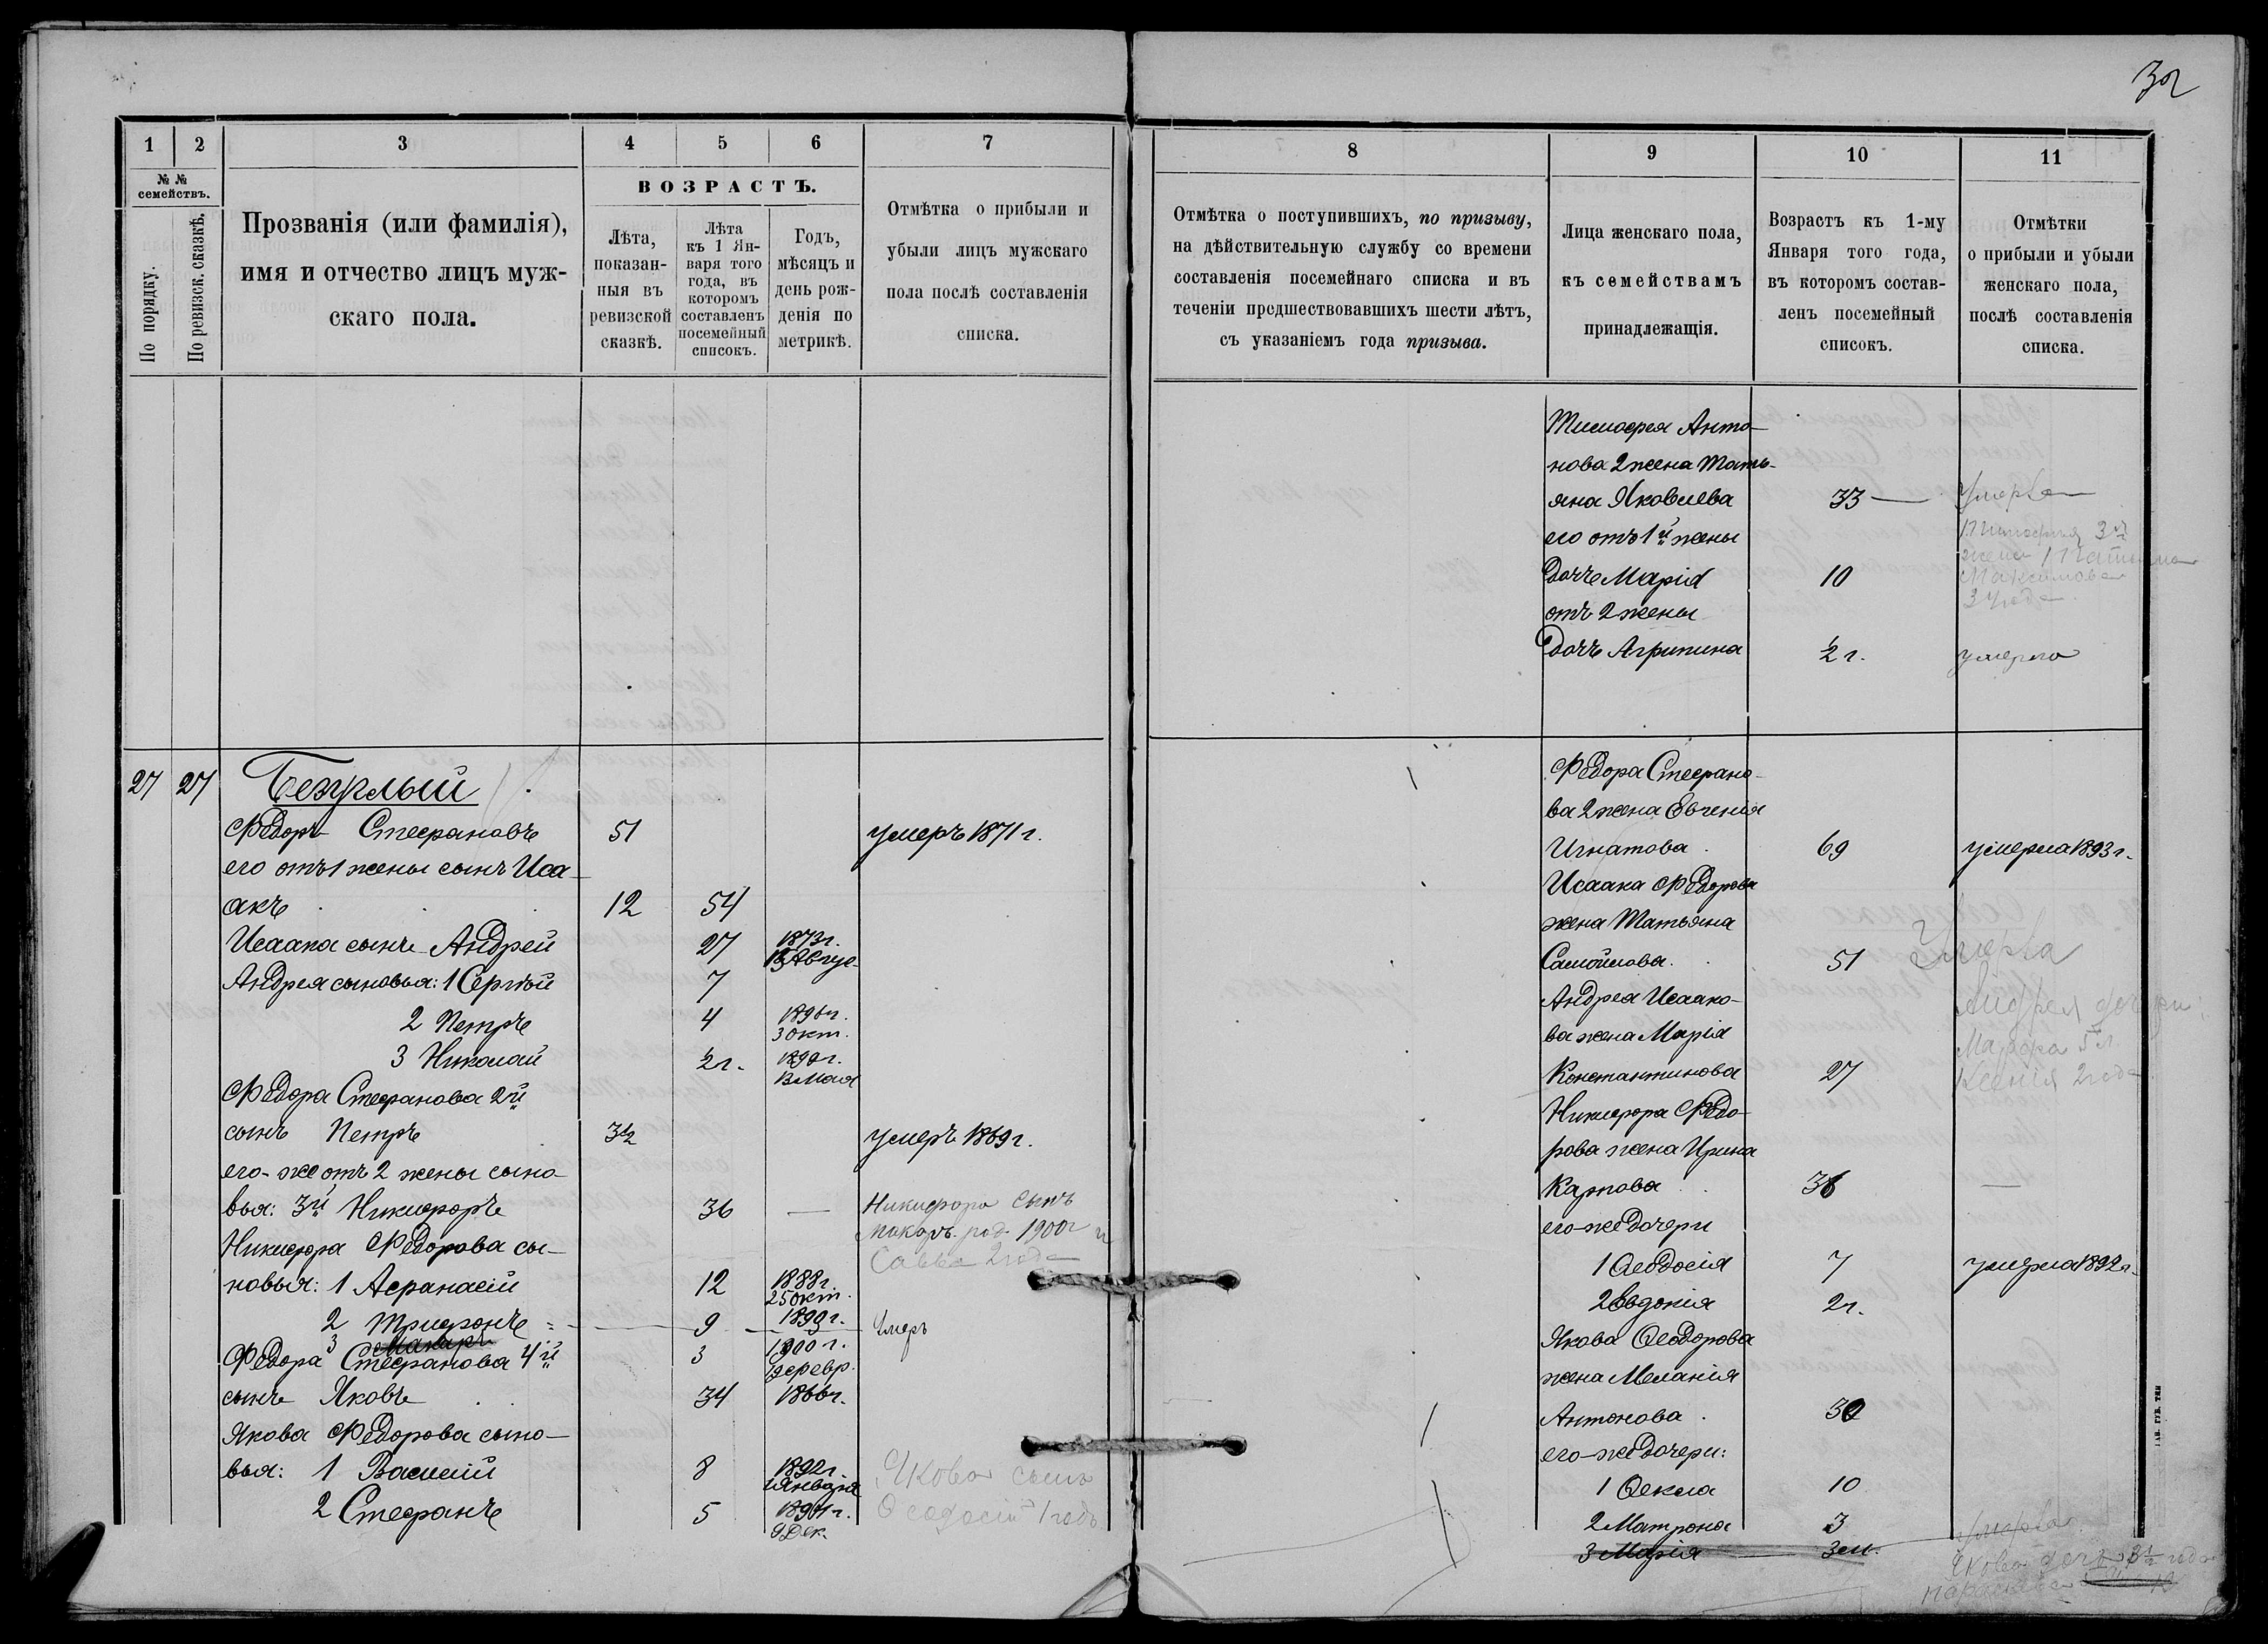 32
1 2 3 4 5 6 7
№ №
семействъ.
По порядку.
По ревизск. сказкѣ.
Прозванія (или фамилія),
имя и отчество лицъ муж-
скаго пола.
ВОЗРАСТЪ.
Лѣта,
показан-
ныя въ
ревизской
сказкѣ.
Лѣта
къ 1 Ян-
варя того
года, въ
которомъ
составленъ
посемейный
списокъ.
Годъ,
мѣсяцъ и
день рож-
денія по
метрикѣ.
Отмѣтка о прибыли и
убыли лицъ мужскаго
пола послѣ составленія
списка.
27 27 Безуглый
Ѳедоръ Стефановъ 51 умеръ 1871 г.
его отъ 1 жены сынъ Иса-
акъ 12 54
Исаака сынъ Андрей 27 1873 г.
Авгус
Андрея сыновья: 1 Сергѣй 7
2 Петръ 4 1896 г.
3 окт.
3 Николай 2 г.
Мая
Ѳедора Стефанова 2й
сынъ Петръ 3½ умеръ 1869 г.
его-же отъ 2 жены сыно-
вья: 3й Никифоръ 36 — Никифора сынъ
Макаръ род. 1900 г и
Савва 2 года
Никифора Ѳедорова сы-
новья: 1 Афанасій 12 1888 г.
25 окт.
2 Трифонъ 9 умеръ
3 Макаръ 3 1900 г.
февр.
Ѳедора Стефанова 4й
сынъ Яковъ 34 1866 г.
Якова Ѳедорова сыно-
вья: 1 Василій 8 1892 г.
1 Января
Якова сынъ
2 Стефанъ 5
9 Дек.
Ѳеодосій 1 годъ
8 9 10 11
Отмѣтка о поступившихъ, по призыву,
на дѣйствительную службу со времени
составленія посемейнаго списка и въ
теченіи предшествовавшихъ шести лѣтъ,
съ указаніемъ года призыва.
Лица женскаго пола,
къ семействамъ
принадлежащія.
Возрастъ къ 1-му
Января того года,
въ которомъ состав-
ленъ посемейный
списокъ.
Отмѣтки
о прибыли и убыли
женскаго пола,
послѣ составленія
списка.
Тимофея Анто-
нова 2 жена Тать-
яна Яковлева 33 — умерла
его отъ 1й жены
Тимофея 3й
жена Татьяна
дочь Марія 10 Максимова
34 года
отъ 2 жены
дочь Агрипина 2 г. умерла
Ѳедора Стефано-
ва 2 жена Евгенія
Игнатова 69 умерла 1893 г.
Исаака Ѳедорова
жена Татьяна
Самойлова 51 Умерла
Андрея Исаако-
Андрея дочери:
ва жена Марія
Константинова 27
Ксенія 2 года
Никифора Ѳедо-
рова жена Ирина
Карпова 36 —
его-же дочери
1 Ѳеодосія 7 умерла 1892 г.
2 Евдокія 2 г.
Якова Ѳеодорова
жена Меланія
Антонова 30
его-же дочери:
1 Ѳекла 10
2 Матрона 3 умерла
3 Марія 3 м.
Якова дочь 3½ года